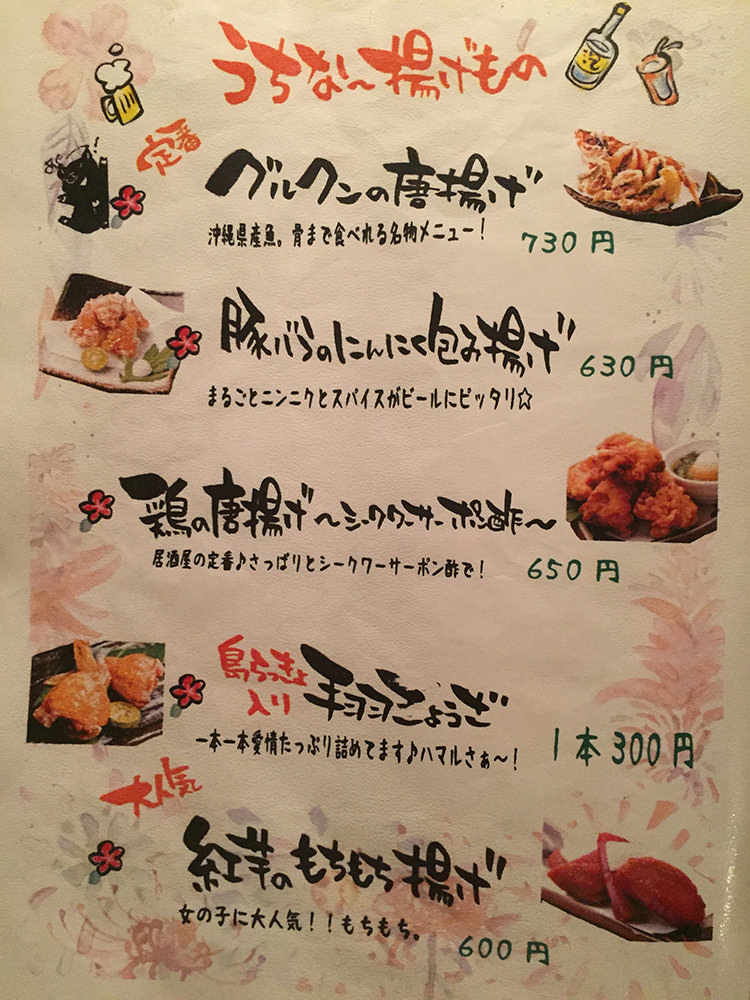 うちなー揚げもの
定番
グルクンの唐揚げ
沖縄県産魚。骨まで食べれる名物メニュー!
730円
豚バラのにんにく包み揚げ
630円
まるごとニンニクとスパイスがビールにピッタリ☆
鶏の唐揚げ～シークワーサーポン酢～
居酒屋の定番♪さっぱりとシークワーサーポン酢で!
650円
島らっきょ入り
手羽ぎょうざ
一本一本愛情たっぷり詰めてます♪ハマルさぁ～!
1本300円
大人気
紅芋のもちもち揚げ
女の子に大人気!!もちもち。
600円